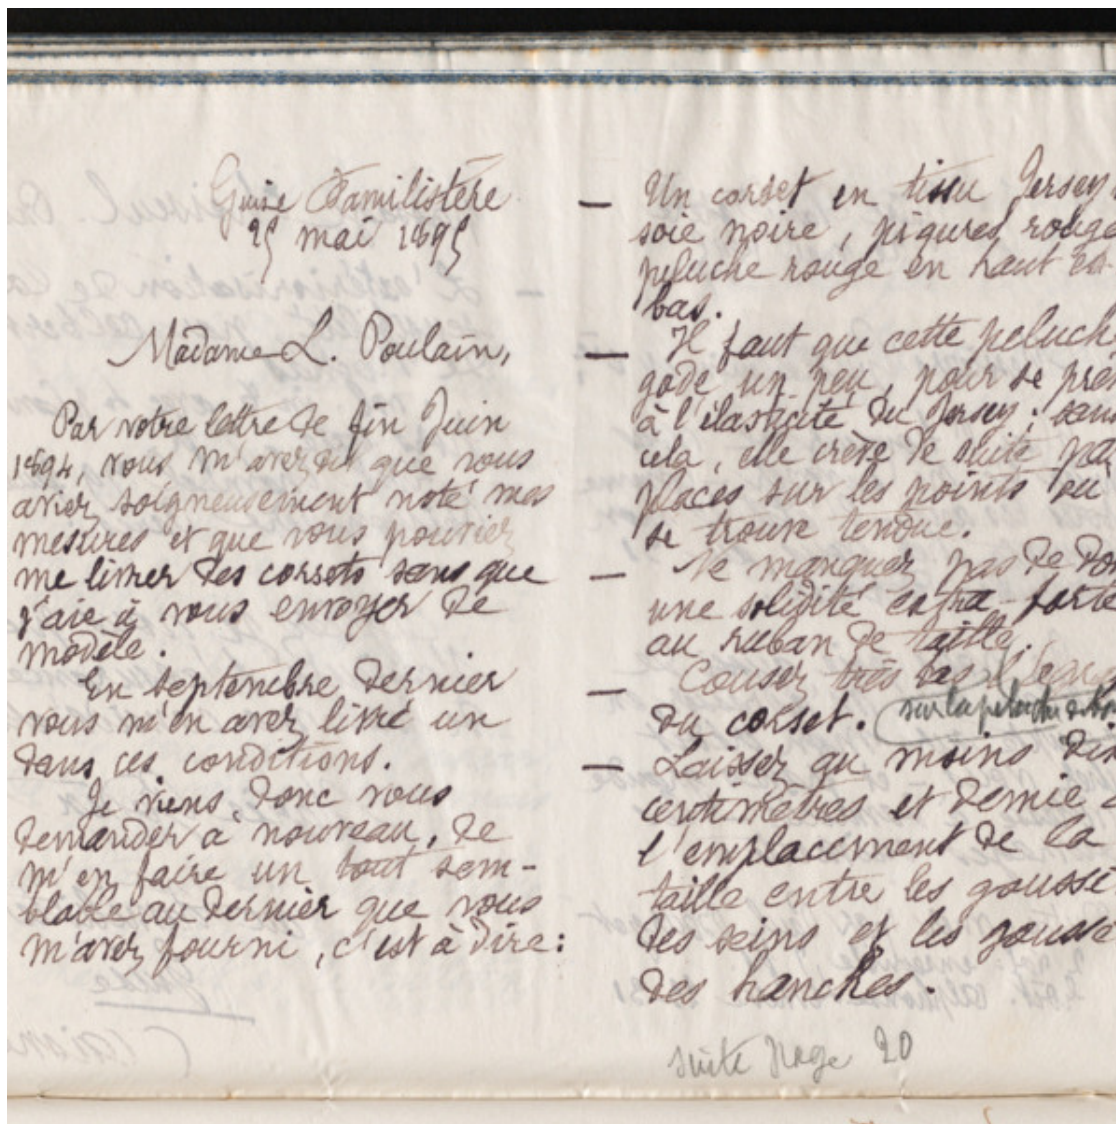 Guise Familistère
25 mai 1895
Madame L. Poulain,
Par votre lettre de fin Juin
1894, vous m'avez dit que vous
aviez soigneusement noté mes
mesures et que vous pouviez
me livrer des corsets sans que
j'aie à vous envoyer de
modèle.
En septembre dernier
vous m'en avez livré un
dans ces conditions.
Je viens donc vous
demander à nouveau, de
m'en faire un tout sem-
blable au dernier que vous
m'avez fourni, c'est à dire:
— Un corset en tissu Jersey
soie noire, piqures rouge
peluche rouge en haut et
bas.
— Il faut que cette peluch
gode un peu, pour se prê
à l'élasticité du Jersey; san
cela, elle crève de suite pa
places sur les points où
se trouve tendue.
— Ne manquez pas de do
une solidité extra-forte
au ruban de taille.
— Cousez très bas
du corset. sur la peluche
— Laissez au moins
centimètres et demie
l'emplacement de la
taille entre les gousse
des seins et les gousse
des hanches.
suite page 20